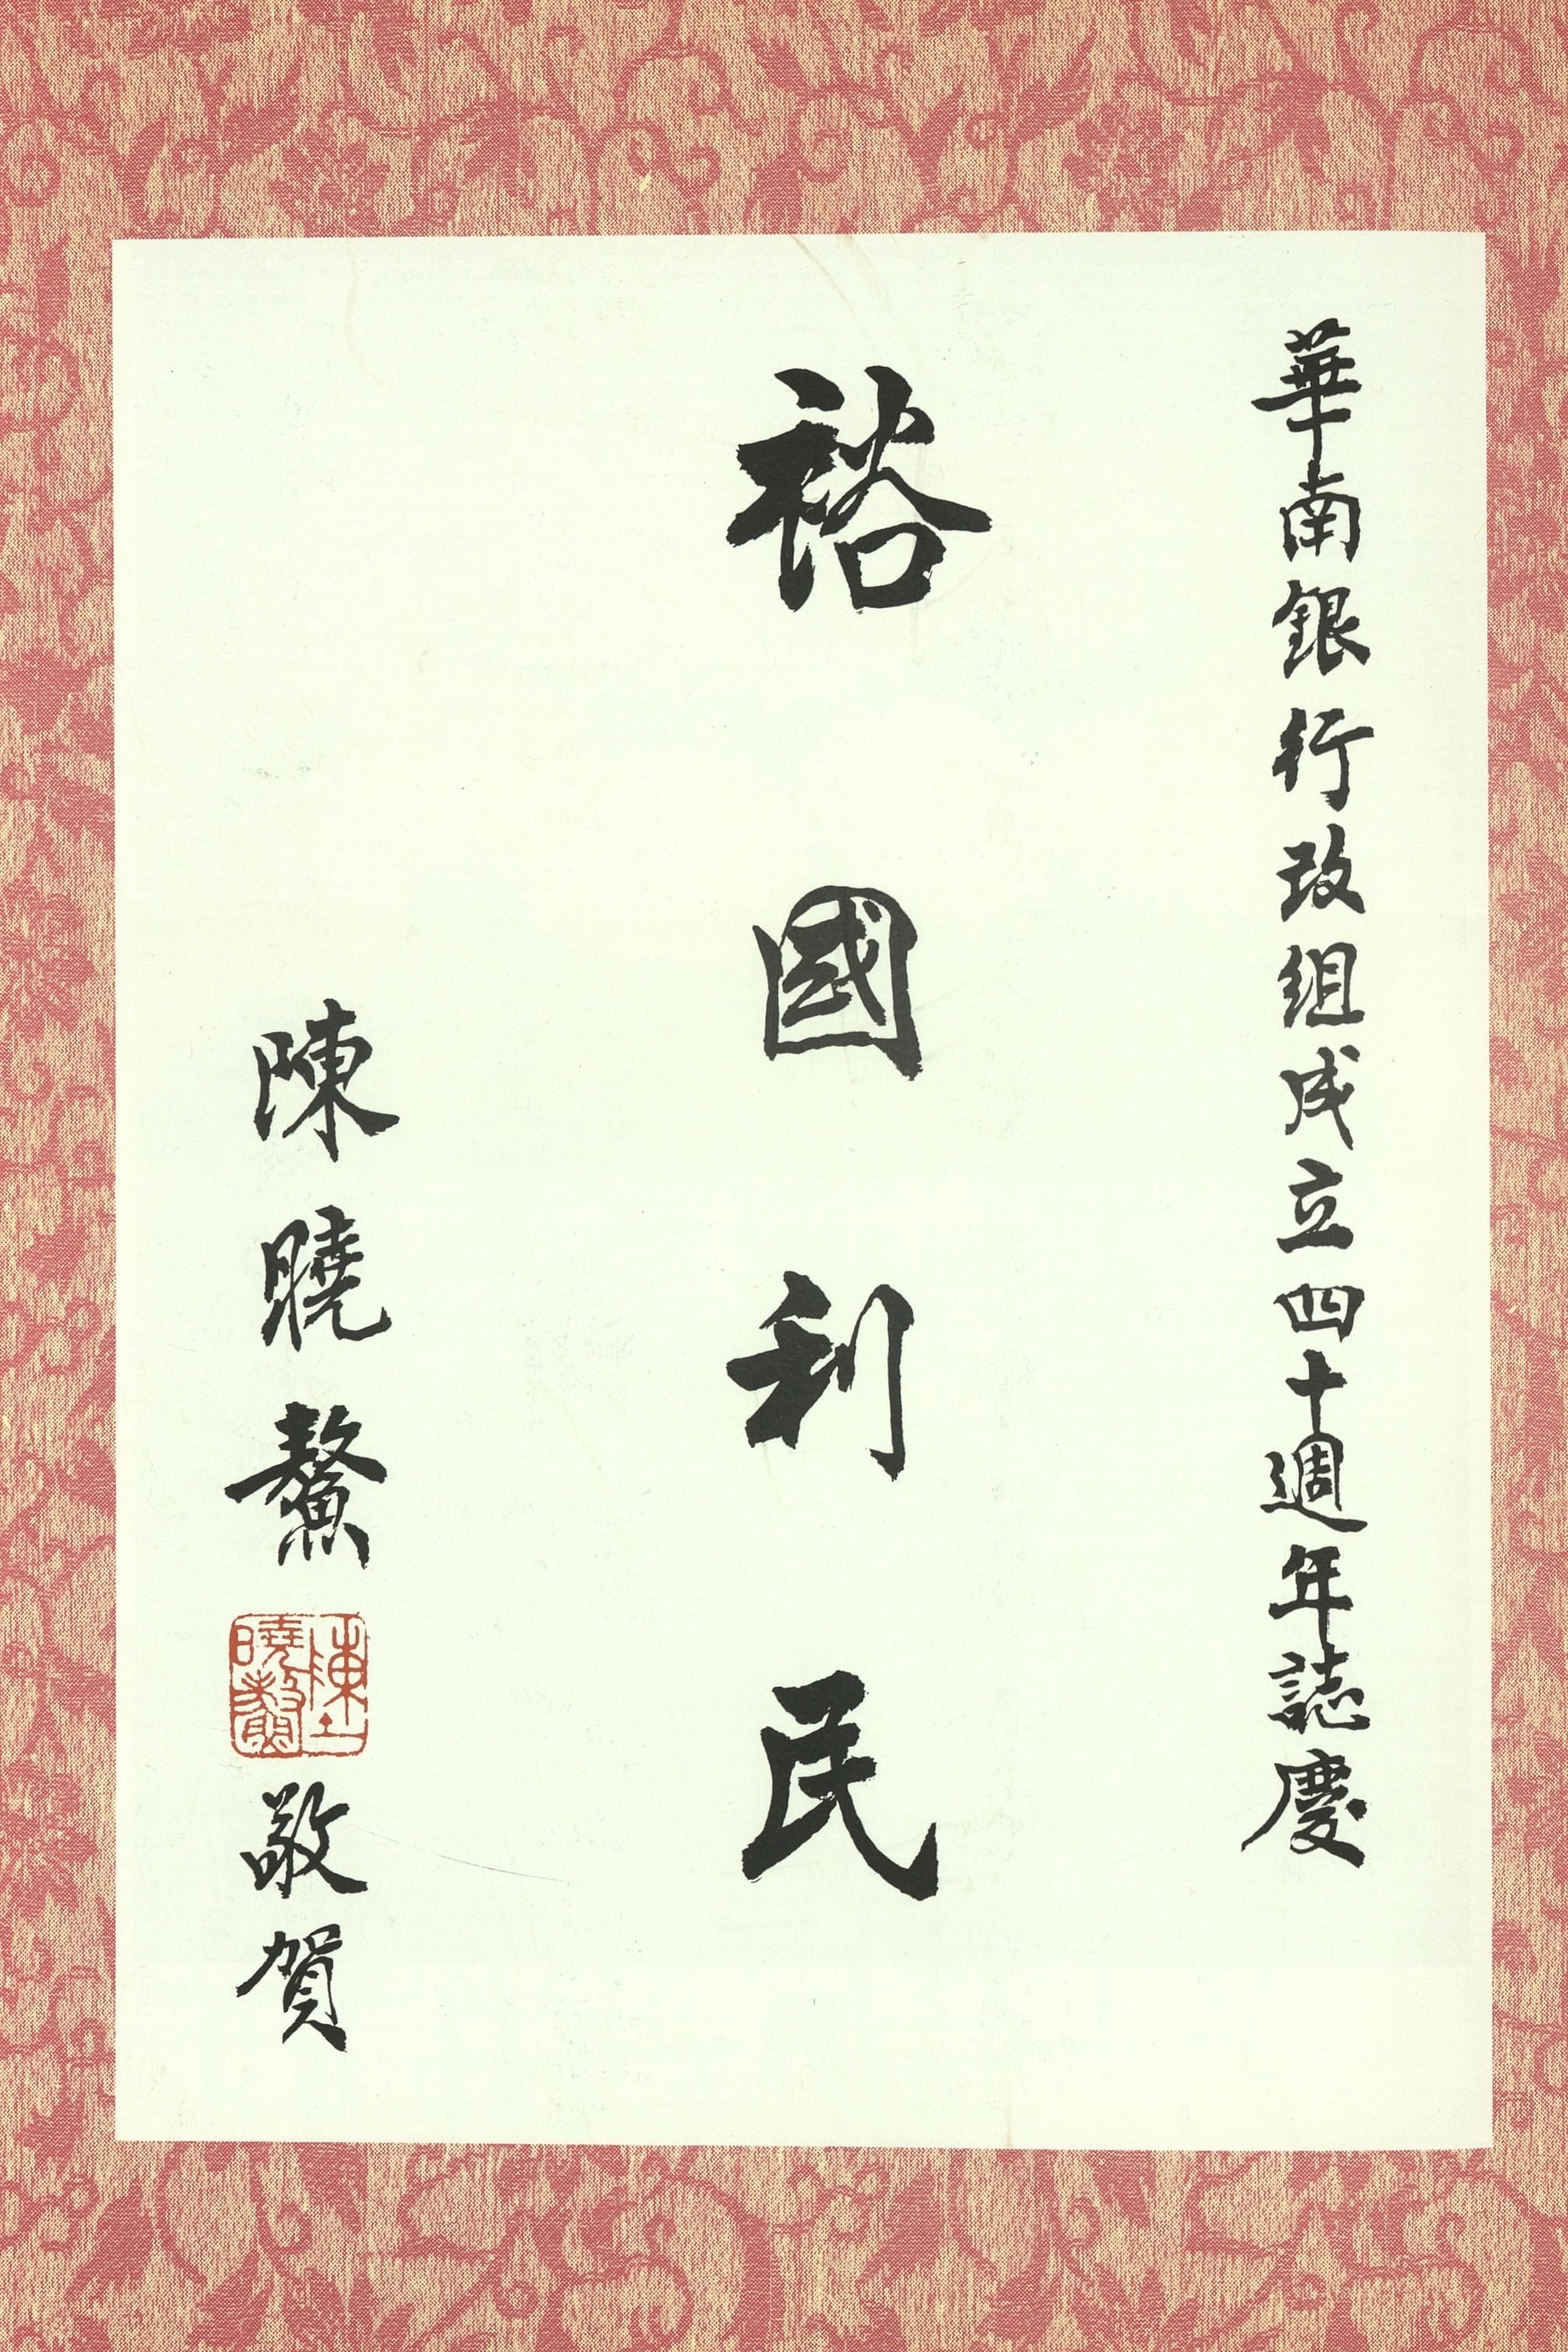 華南銀行改組成立四十週年誌慶
裕國利民
陳曉鰲
陳曉鰲
敬賀